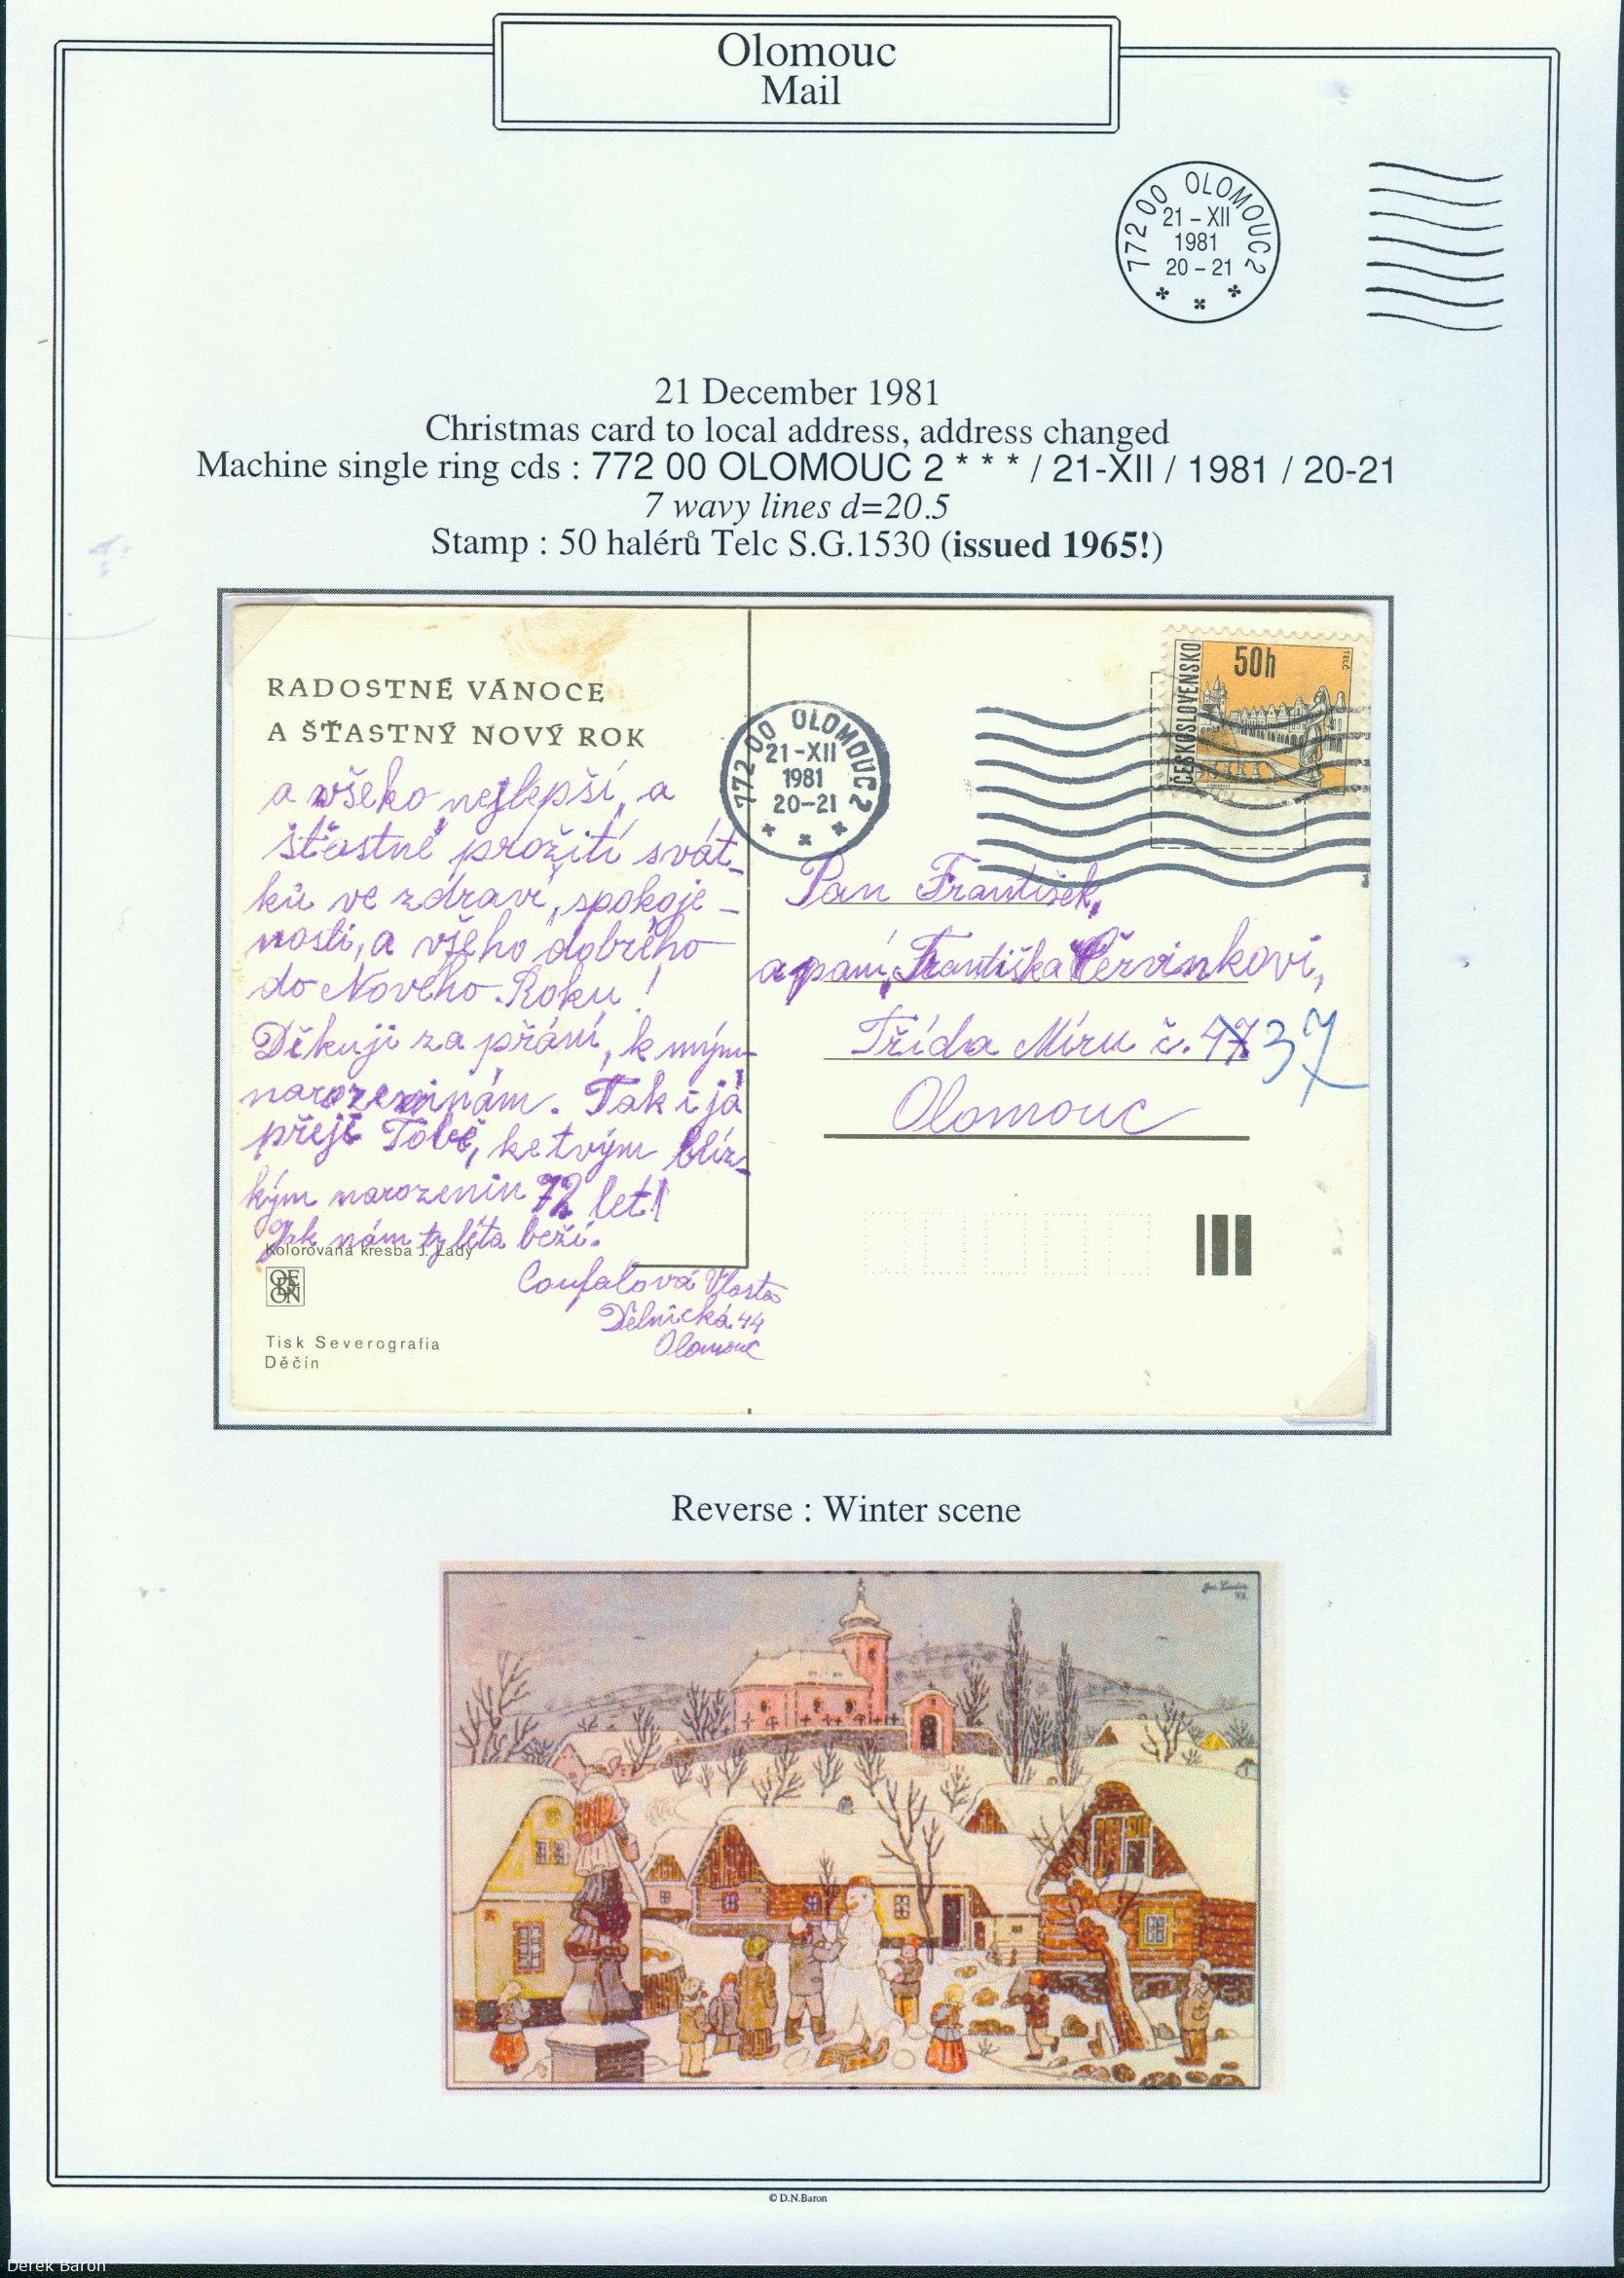 Olomouc
Mail
772 00 OLOMOUC 2
21 – XII
1981
20 – 21
* * *
21 December 1981
Christmas card to local address, address changed
Machine single ring cds : 772 00 OLOMOUC 2 * * * / 21-XII / 1981 / 20-21
7 wavy lines d=20.5
Stamp : 50 halérů Telc S.G.1530 (issued 1965!)
RADOSTNÉ VÁNOCE
A ŠŤASTNÝ NOVÝ ROK
a všeho nejlepší, a
šťastné prožití svát-
ků ve zdraví, spokoje-
nosti, a všeho dobrého
do Nového Roku!
Děkuji za přání, k mým
narozeninám. Tak i já
přeji Tobě, ke tvým blíz-
kým narozenin 72 let!
Jak nám ty léta beží.
Kolorovaná kresba J. Lady
ODEON
Coufalová Vlasta
Dělnická 44
Olomouc
Tisk Severografia
Děčín
772 00 OLOMOUC 2
21-XII
1981
20-21
* * *
ČESKOSLOVENSKO
50h
TELČ
Pan František,
a paní, Františka Červinkovi,
Třída Míru č. 47 37
Olomouc
Reverse : Winter scene
© D.N.Baron
Derek Baron